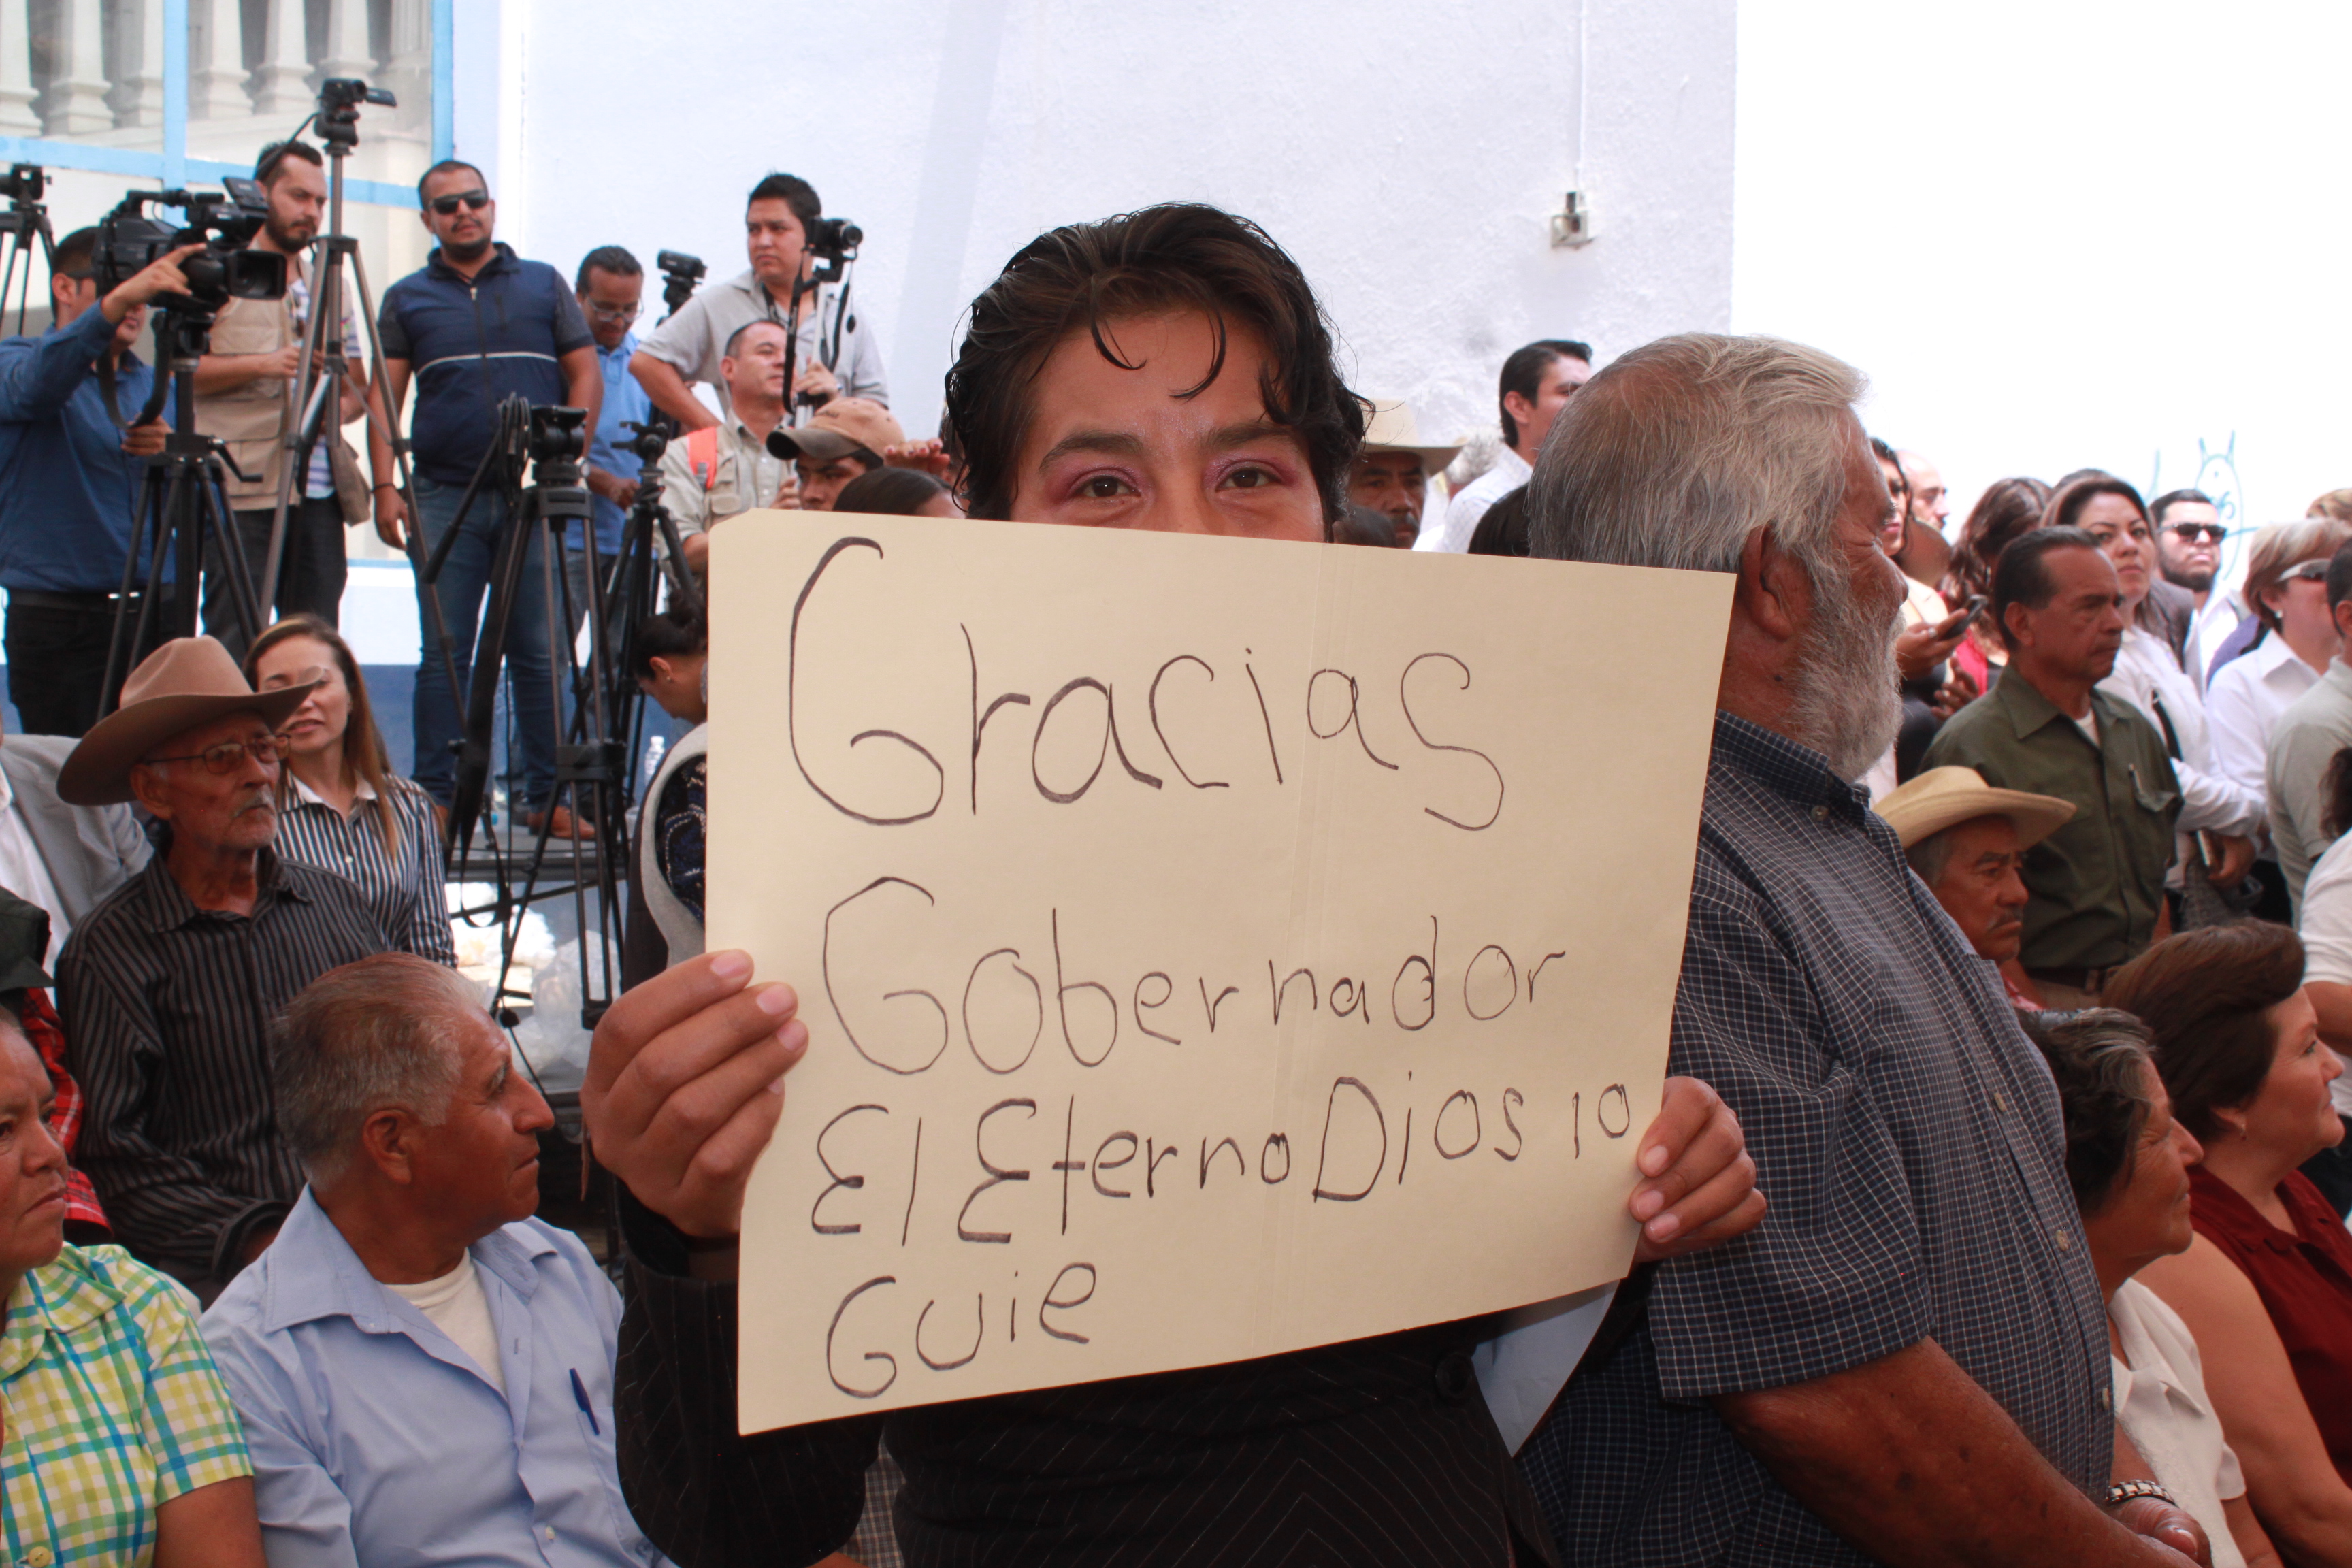 Gracias
Gobernador
El Eterno Dios lo
Guie